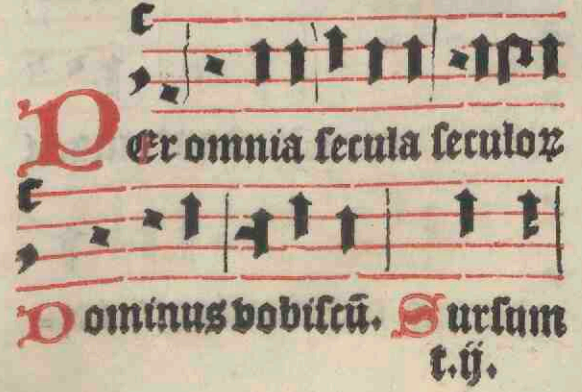 PEr omnia ſecula ſeculoꝝ
Dominus vobiſcū. Surſum
t.ij.